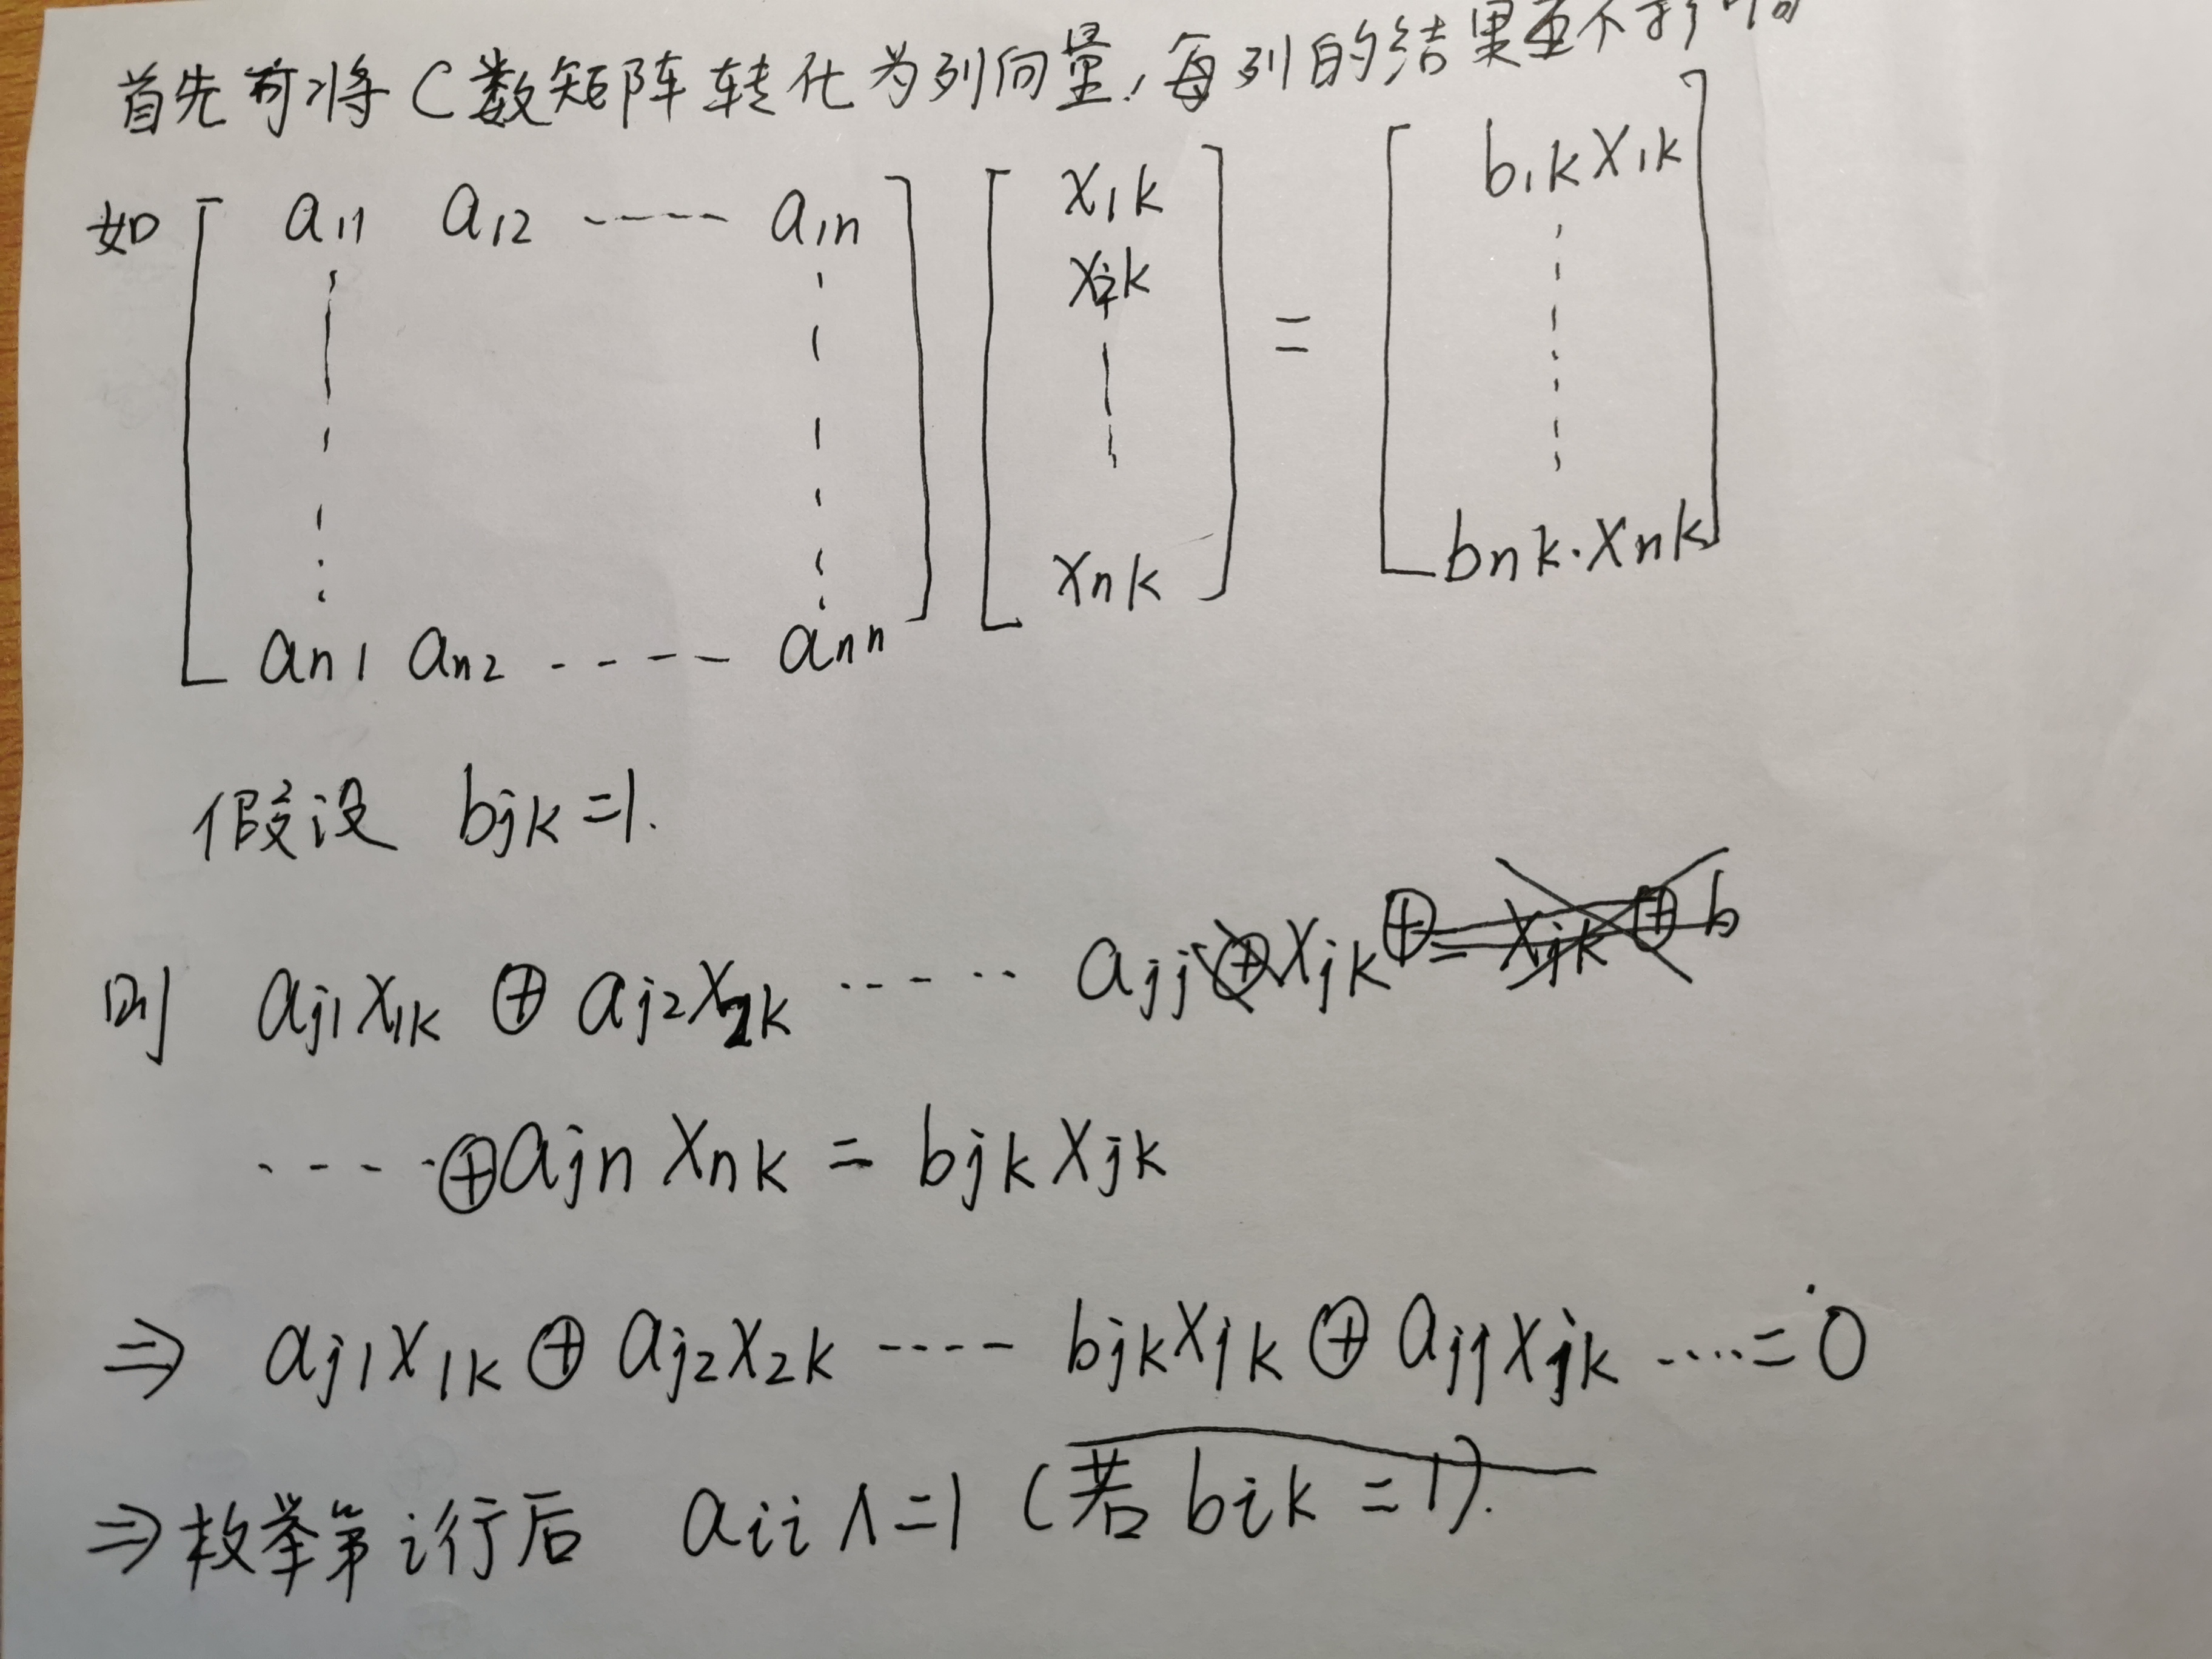 首先可将C数矩阵转化为列向量,每列的结果互不影响
如 [ a11 a12 ----- a1n ] [ x1k ] = [ b1k x1k ]
x2k
xnk
bnk·xnk
an1 an2 ----- ann
假设 bjk=1.
则 aj1x1k ⊕ aj2x2k ------ ajj xjk ⊕
----⊕ajn xnk = bjk xjk
⇒ aj1x1k ⊕ aj2x2k ---- bjkxjk ⊕ ajjxjk ....=0
⇒枚举第i行后 aii ∧=1 (若 bik =1).